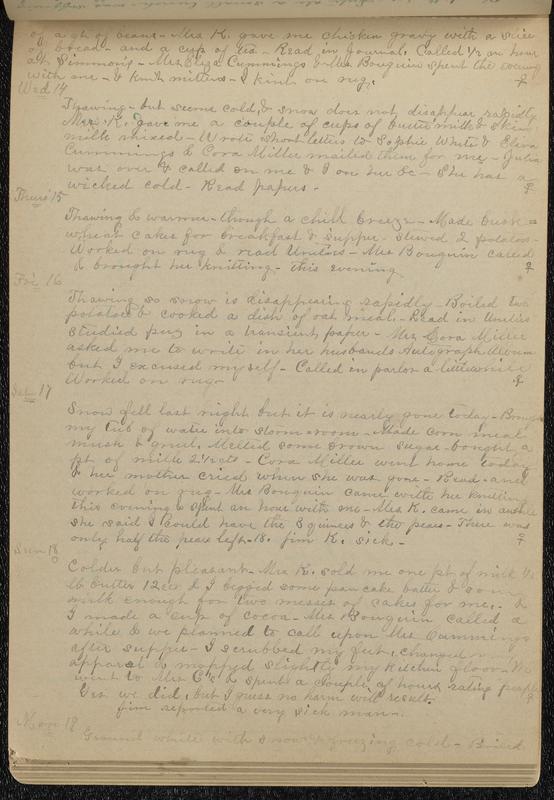 of a qt of beans - Mrs K. gave me chicken gravy with a slice
bread - and a cup of tea - Read in Journal. Called 1/2 an hour
at Simmons - Mrs Eliza Cummings & Mrs Bouquin spent the evening
with me - I knit mittens - & knit on rug.
Wed 14
Thawing - but seems cold, & snow does not disappear rapidly
Mrs K. gave me a couple of cups of butter milk & skim
milk mixed - Wrote short letters to Sophie White & Eliza
Cummings & Cora Miller mailed them for me - Julia
was over & called on me & I on her &c - She has a
wicked cold - Read papers -
Thurs 15
Thawing & warmer - though a chill breeze - Made buck =
wheat cakes for breakfast & supper - stewed 2 potatoes -
Worked on rug & read Unities - Mrs Bouquin called
& brought her knitting - this evening
Fri 16
Thawing so snow is disappearing rapidly - Boiled two
potatoes & cooked a dish of oat meal - Read in Unities
studied pug in a transient paper - Mrs Cora Miller
asked me to write in her husbands Autograph Album
but I excused myself - Called in parlor a little while
Worked on rug -
Sat 17
Snow fell last night but it is nearly gone today -
my tub of water into storm-room - Made corn meal
mush & gruel. Melted some brown sugar - bought a
pt of milk 2 1/2 cts - Cora Miller went home today
& her mother cried when she was gone - Read - and
worked on rug - Mrs Bouquin came with her knitting
this evening & spent an hour with me - Mrs K. came in
she said I could have the 3 quinces & the pears - There was
only half the pears left - 18. Jim K. sick -
Sun 18
Colder but pleasant - Mrs K. sold me one pt of milk
lb butter 12 cts & I begged some pancake batter & sour
milk enough for two messes of cakes for me. &
I made a cup of cocoa - Mrs Bouquin called a
while & we planned to call upon Mrs Cummings
after supper - I scrubbed my feet, changed
apparel & mopped slightly my kitchen floor - We
went to Mrs C's & spent a couple of hours eating people
Yes we did, but I guess no harm will result.
Jim reported a very sick man -
Mon 18
Ground white with snow & freezing cold - Boiled